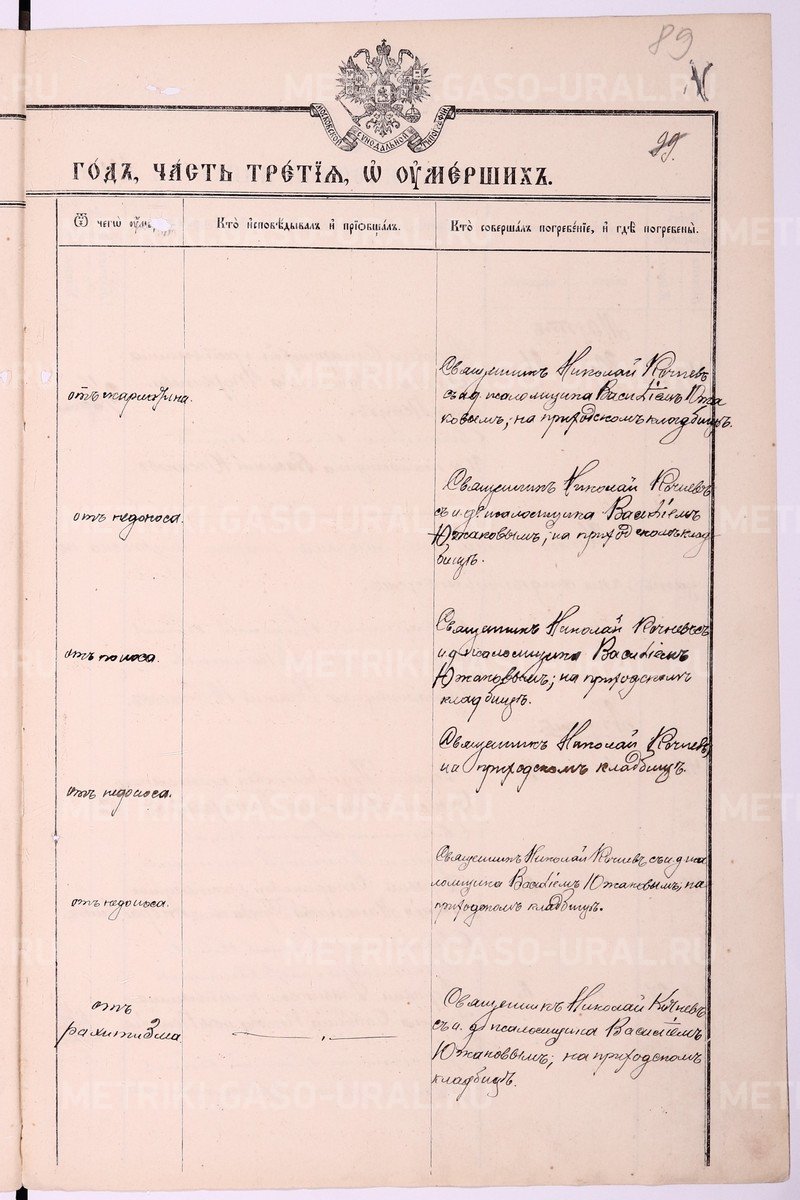 89
99.
МОСКОВСКОЙ СѴНОДАЛЬНОЙ ТИПОГРАФІИ
ГОДЪ, ЧАСТЬ ТРЕТІѦ, Ѡ ОУМЕРШИХЪ.
Ѿ чегѡ оум
Кто исповѣдывалъ и пріобщалъ.
Кто совершалъ погребеніе, и гдѣ погребены.
Священникъ Николай Кочневъ
съ и.д. псаломщика Василіемъ Южа
отъ
ковымъ; на приходскомъ кладбищѣ.
Священникъ Николай Кочневъ
съ и. д. псаломщика Василіемъ
отъ недоноса.
Южаковымъ; на приходскомъ клад-
бищѣ.
Священникъ Николай Кочневъ съ
и д псаломщика Василіемъ
отъ поноса.
Южаковымъ; на приходскомъ
кладбищѣ.
Священникъ Николай Кочневъ,
на приходскомъ кладбищѣ.
отъ недоноса.
Священникъ Николай Кочневъ, съ и д пса
ломщика Василіемъ Южаковымъ, на
отъ недоноса.
приходскомъ кладбищѣ.
Священникъ Николай Кочневъ
отъ
съ и. д. псаломщика Василіемъ
рахитизма
Южаковымъ; на приходскомъ
кладбищѣ.
METRIKI.GASO-URAL.RU